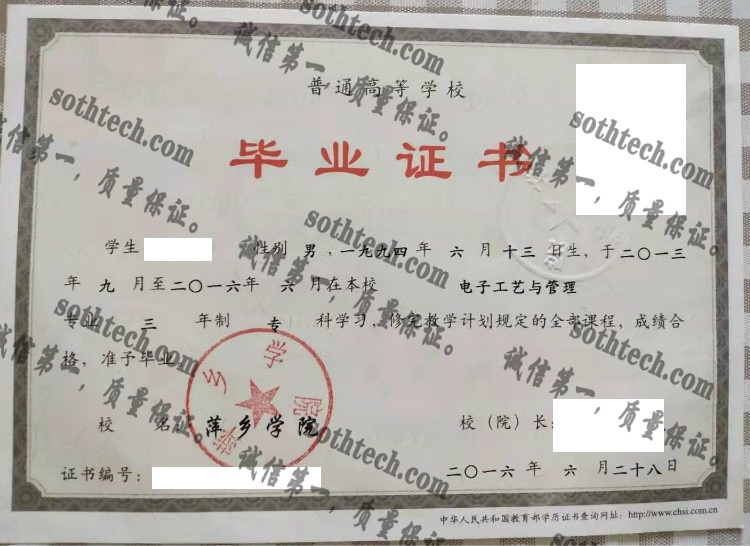 普通高等学校
毕业证书
学生 性别 男，一九九四年 六 月 十三 日生，于二〇一三
年 九 月至二〇一六年 六 月在本校 电子工艺与管理
专业 三 年制 专 科学习，修完教学计划规定的全部课程，成绩合
格，准予毕业。
校 名：萍乡学院
校（院）长：
证书编号：
二〇一六年 六 月二十八日
中华人民共和国教育部学历证书查询网址：http://www.chsi.com.cn
萍乡学院
sothtech.com
诚信第一，质量保证。
sothtech.com
诚信第一，质量保证。
sothtech.com
诚信第一，质量保证。
sothtech.com
诚信第一，质量保证。
sothtech.com
诚信第一，质量保证。
sothtech.com
诚信第一，质量保证。
sothtech.com
诚信第一，质量保证。
sothtech.com
诚信第一，质量保证。